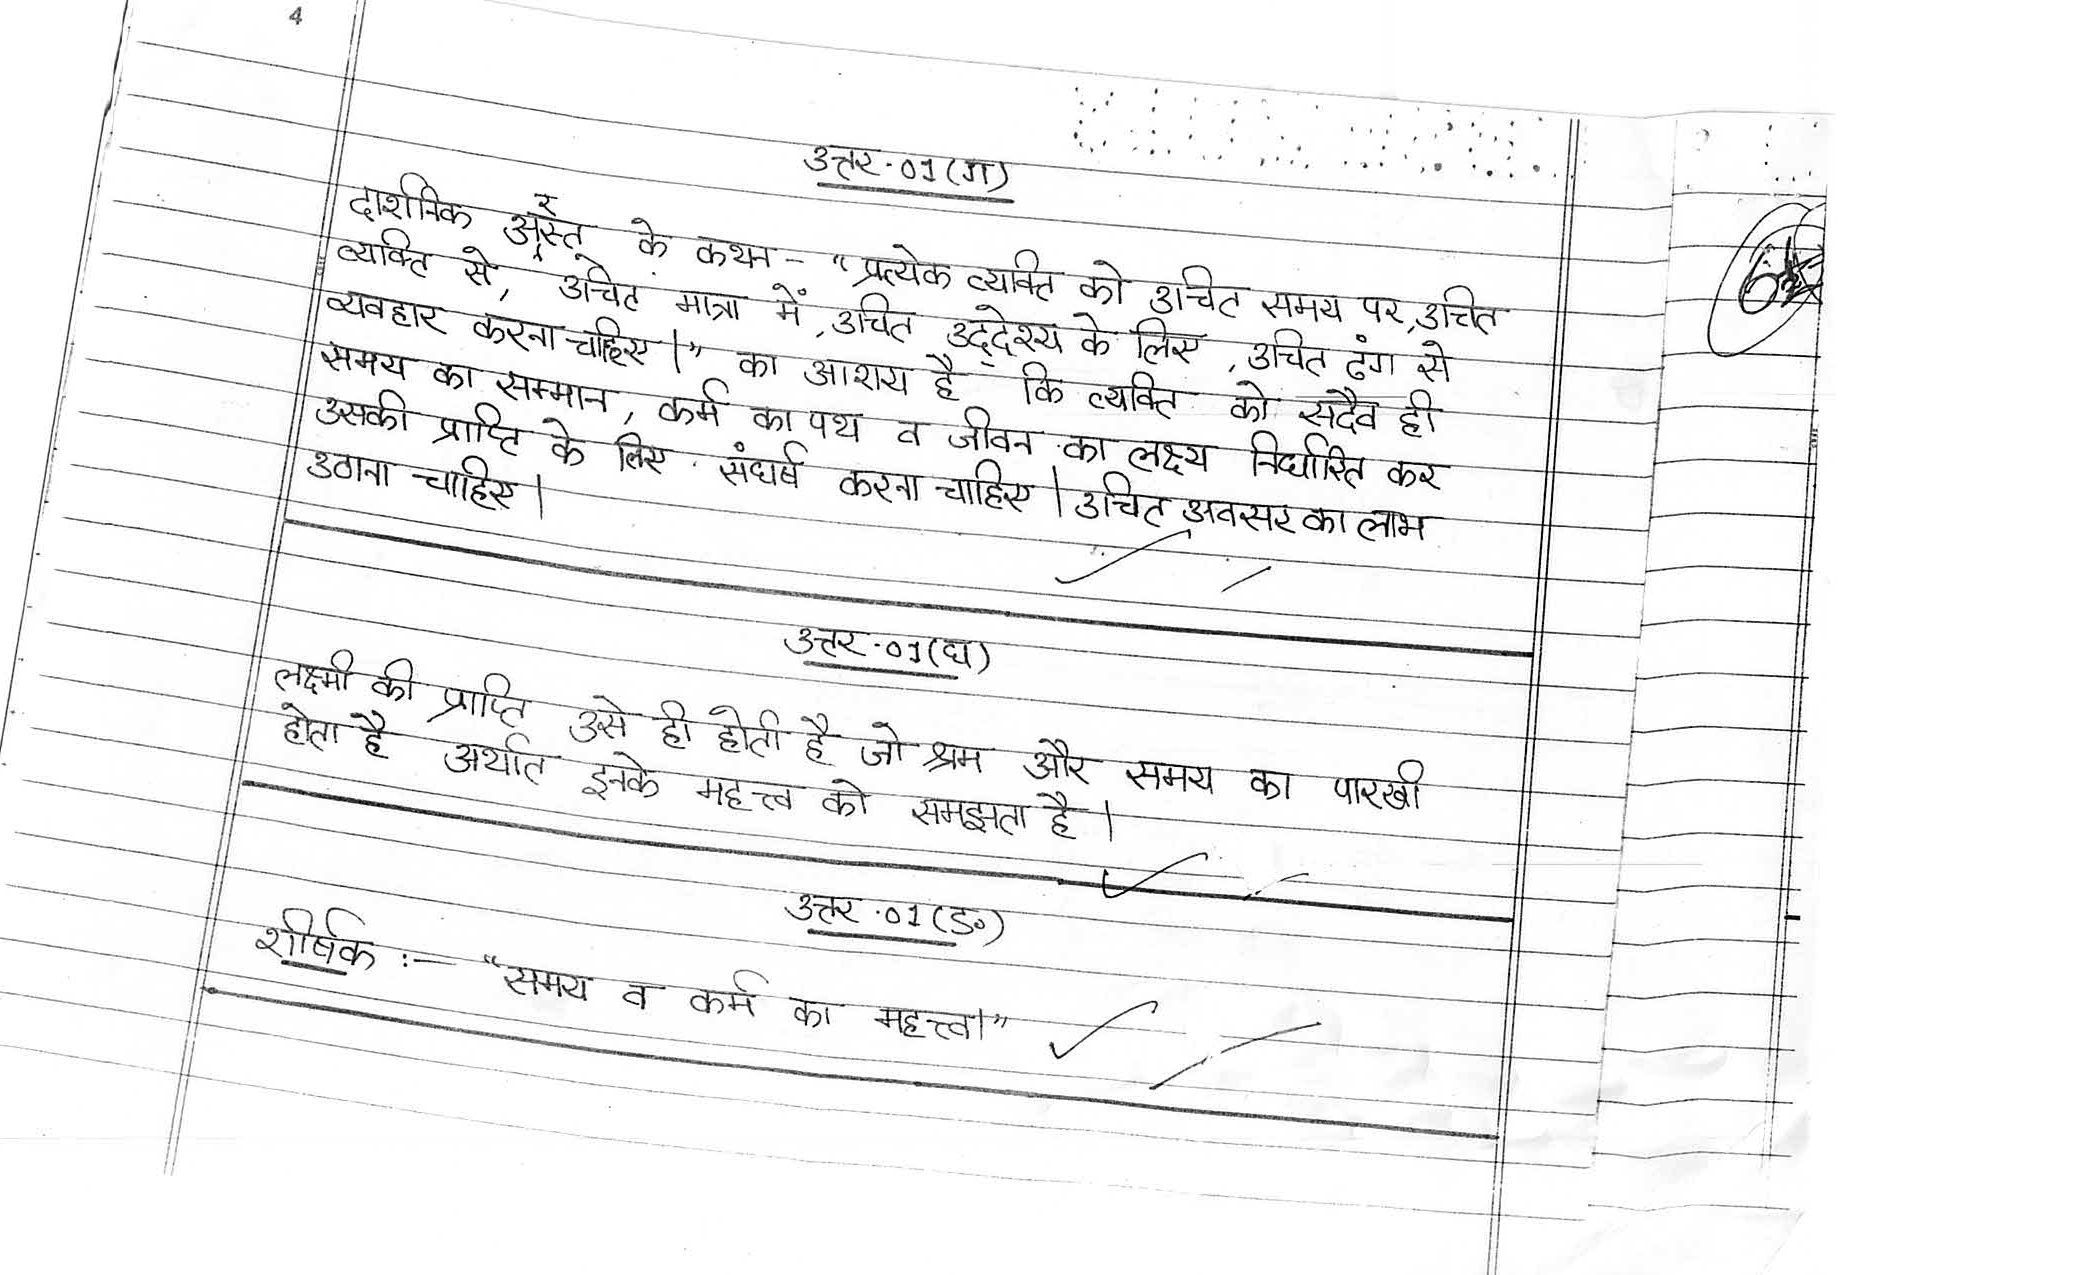 4
उत्तर-01(ग)
दार्शनिक अरस्तू के कथन - "प्रत्येक व्यक्ति को उचित समय पर, उचित
व्यक्ति से, उचित मात्रा में, उचित उद्देश्य के लिए, उचित ढंग से
व्यवहार करना चाहिए।" का आशय है कि व्यक्ति को सदैव ही
समय का सम्मान, कर्म का पथ व जीवन का लक्ष्य निर्धारित कर
उसकी प्राप्ति के लिए संघर्ष करना चाहिए। उचित अवसर का लाभ
उठाना चाहिए।
उत्तर-01(घ)
लक्ष्मी की प्राप्ति उसे ही होती है जो श्रम और समय का पारखी
होता है अर्थात इनके महत्त्व को समझता है।
उत्तर-01(ङ)
शीर्षक :- "समय व कर्म का महत्त्व।"